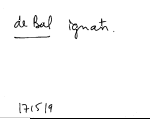 de Bal ignatı.
17519